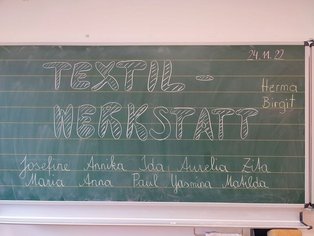 24. 11. 22
TEXTIL-
WERKSTATT
Herma
Birgit
Josefine Annika Ida Aurelia Zita
Maria Anna Paul Yasmina Matilda